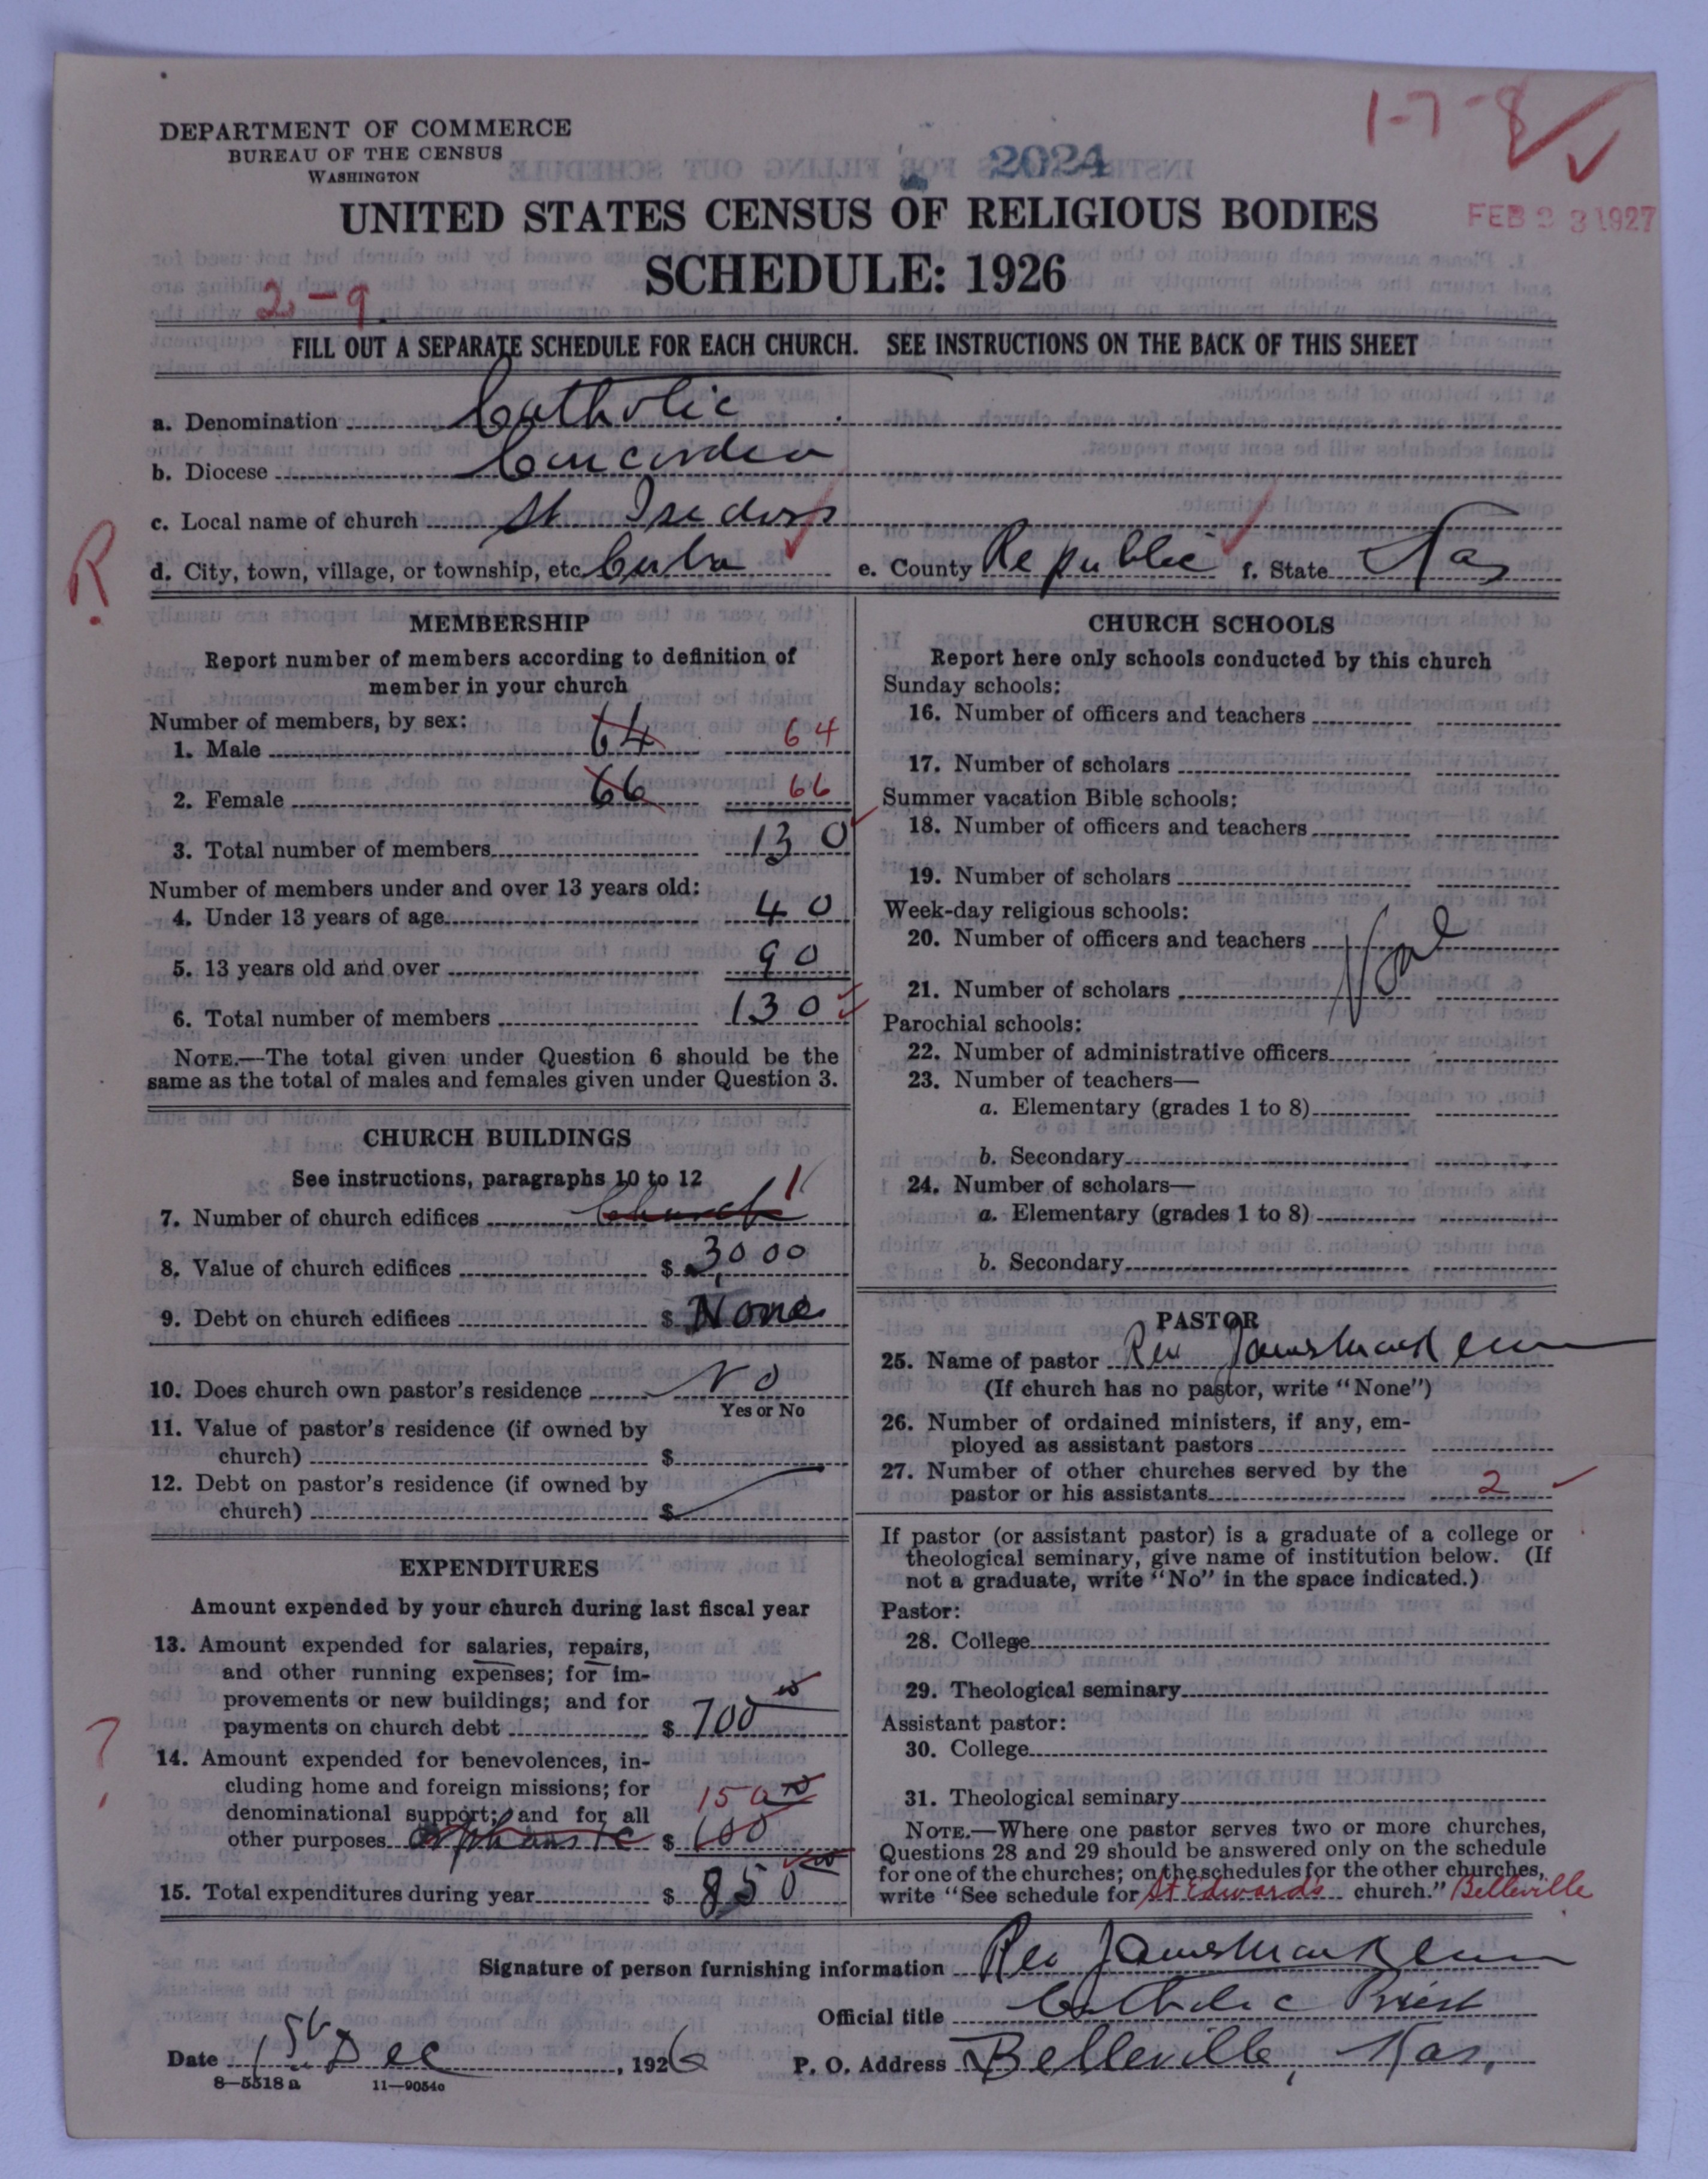 DEPARTMENT OF COMMERCE
BUREAU OF THE CENSUS
WASHINGTON
2024
1-7-8
FEB 23 1927
UNITED STATES CENSUS OF RELIGIOUS BODIES
SCHEDULE: 1926
2-9
FILL OUT A SEPARATE SCHEDULE FOR EACH CHURCH. SEE INSTRUCTIONS ON THE BACK OF THIS SHEET
a. Denomination Catholic
b. Diocese Concordia
c. Local name of church St Isedors
R.
d. City, town, village, or township, etc. Cuba e. County Republic f. State Kas
MEMBERSHIP
Report number of members according to definition of
member in your church
Number of members, by sex:
1. Male 64 64
2. Female 66 66
3. Total number of members 130
Number of members under and over 13 years old:
4. Under 13 years of age 40
5. 13 years old and over 90
6. Total number of members 130
NOTE.—The total given under Question 6 should be the
same as the total of males and females given under Question 3.
CHURCH BUILDINGS
See instructions, paragraphs 10 to 12
7. Number of church edifices Church 1
8. Value of church edifices $ 3000
9. Debt on church edifices $ None
10. Does church own pastor's residence No
Yes or No
11. Value of pastor's residence (if owned by
church) $
12. Debt on pastor's residence (if owned by
church) $
EXPENDITURES
Amount expended by your church during last fiscal year
13. Amount expended for salaries, repairs,
and other running expenses; for im-
provements or new buildings; and for
payments on church debt $ 700
?
14. Amount expended for benevolences, in-
cluding home and foreign missions; for
denominational support; and for all 150
other purposes orphans $ 100
15. Total expenditures during year $ 850
CHURCH SCHOOLS
Report here only schools conducted by this church
Sunday schools:
16. Number of officers and teachers
17. Number of scholars
Summer vacation Bible schools:
18. Number of officers and teachers
19. Number of scholars
Week-day religious schools:
20. Number of officers and teachers
21. Number of scholars
Parochial schools:
22. Number of administrative officers
23. Number of teachers—
a. Elementary (grades 1 to 8)
b. Secondary
24. Number of scholars—
a. Elementary (grades 1 to 8)
b. Secondary
PASTOR
25. Name of pastor Rev James
(If church has no pastor, write "None")
26. Number of ordained ministers, if any, em-
ployed as assistant pastors
27. Number of other churches served by the
pastor or his assistants 2
If pastor (or assistant pastor) is a graduate of a college or
theological seminary, give name of institution below. (If
not a graduate, write "No" in the space indicated.)
Pastor:
28. College
29. Theological seminary
Assistant pastor:
30. College
31. Theological seminary
NOTE.—Where one pastor serves two or more churches,
Questions 28 and 29 should be answered only on the schedule
for one of the churches; on the schedules for the other churches,
write "See schedule for St Edwards church." Belleville
Signature of person furnishing information Rev James
Official title Catholic Priest
Date 15th Dec, 1926 P. O. Address Belleville, Kas.
8—5518 a 11—9054c